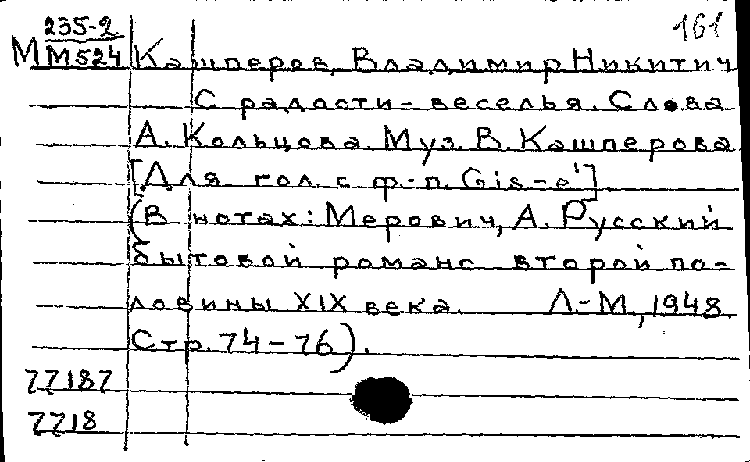 161
235-2
М М524
Кашперов, Владимир Никитич
С радости-веселья. Слова
А. Кольцова. Муз. В. Кашперова
[Для гол. с ф-п. Gis-e¹]
(В нотах: Мерович, А. Русский
бытовой романс второй по-
ловины XIX века. Л-М, 1948
Стр. 74-76).
77187
7718